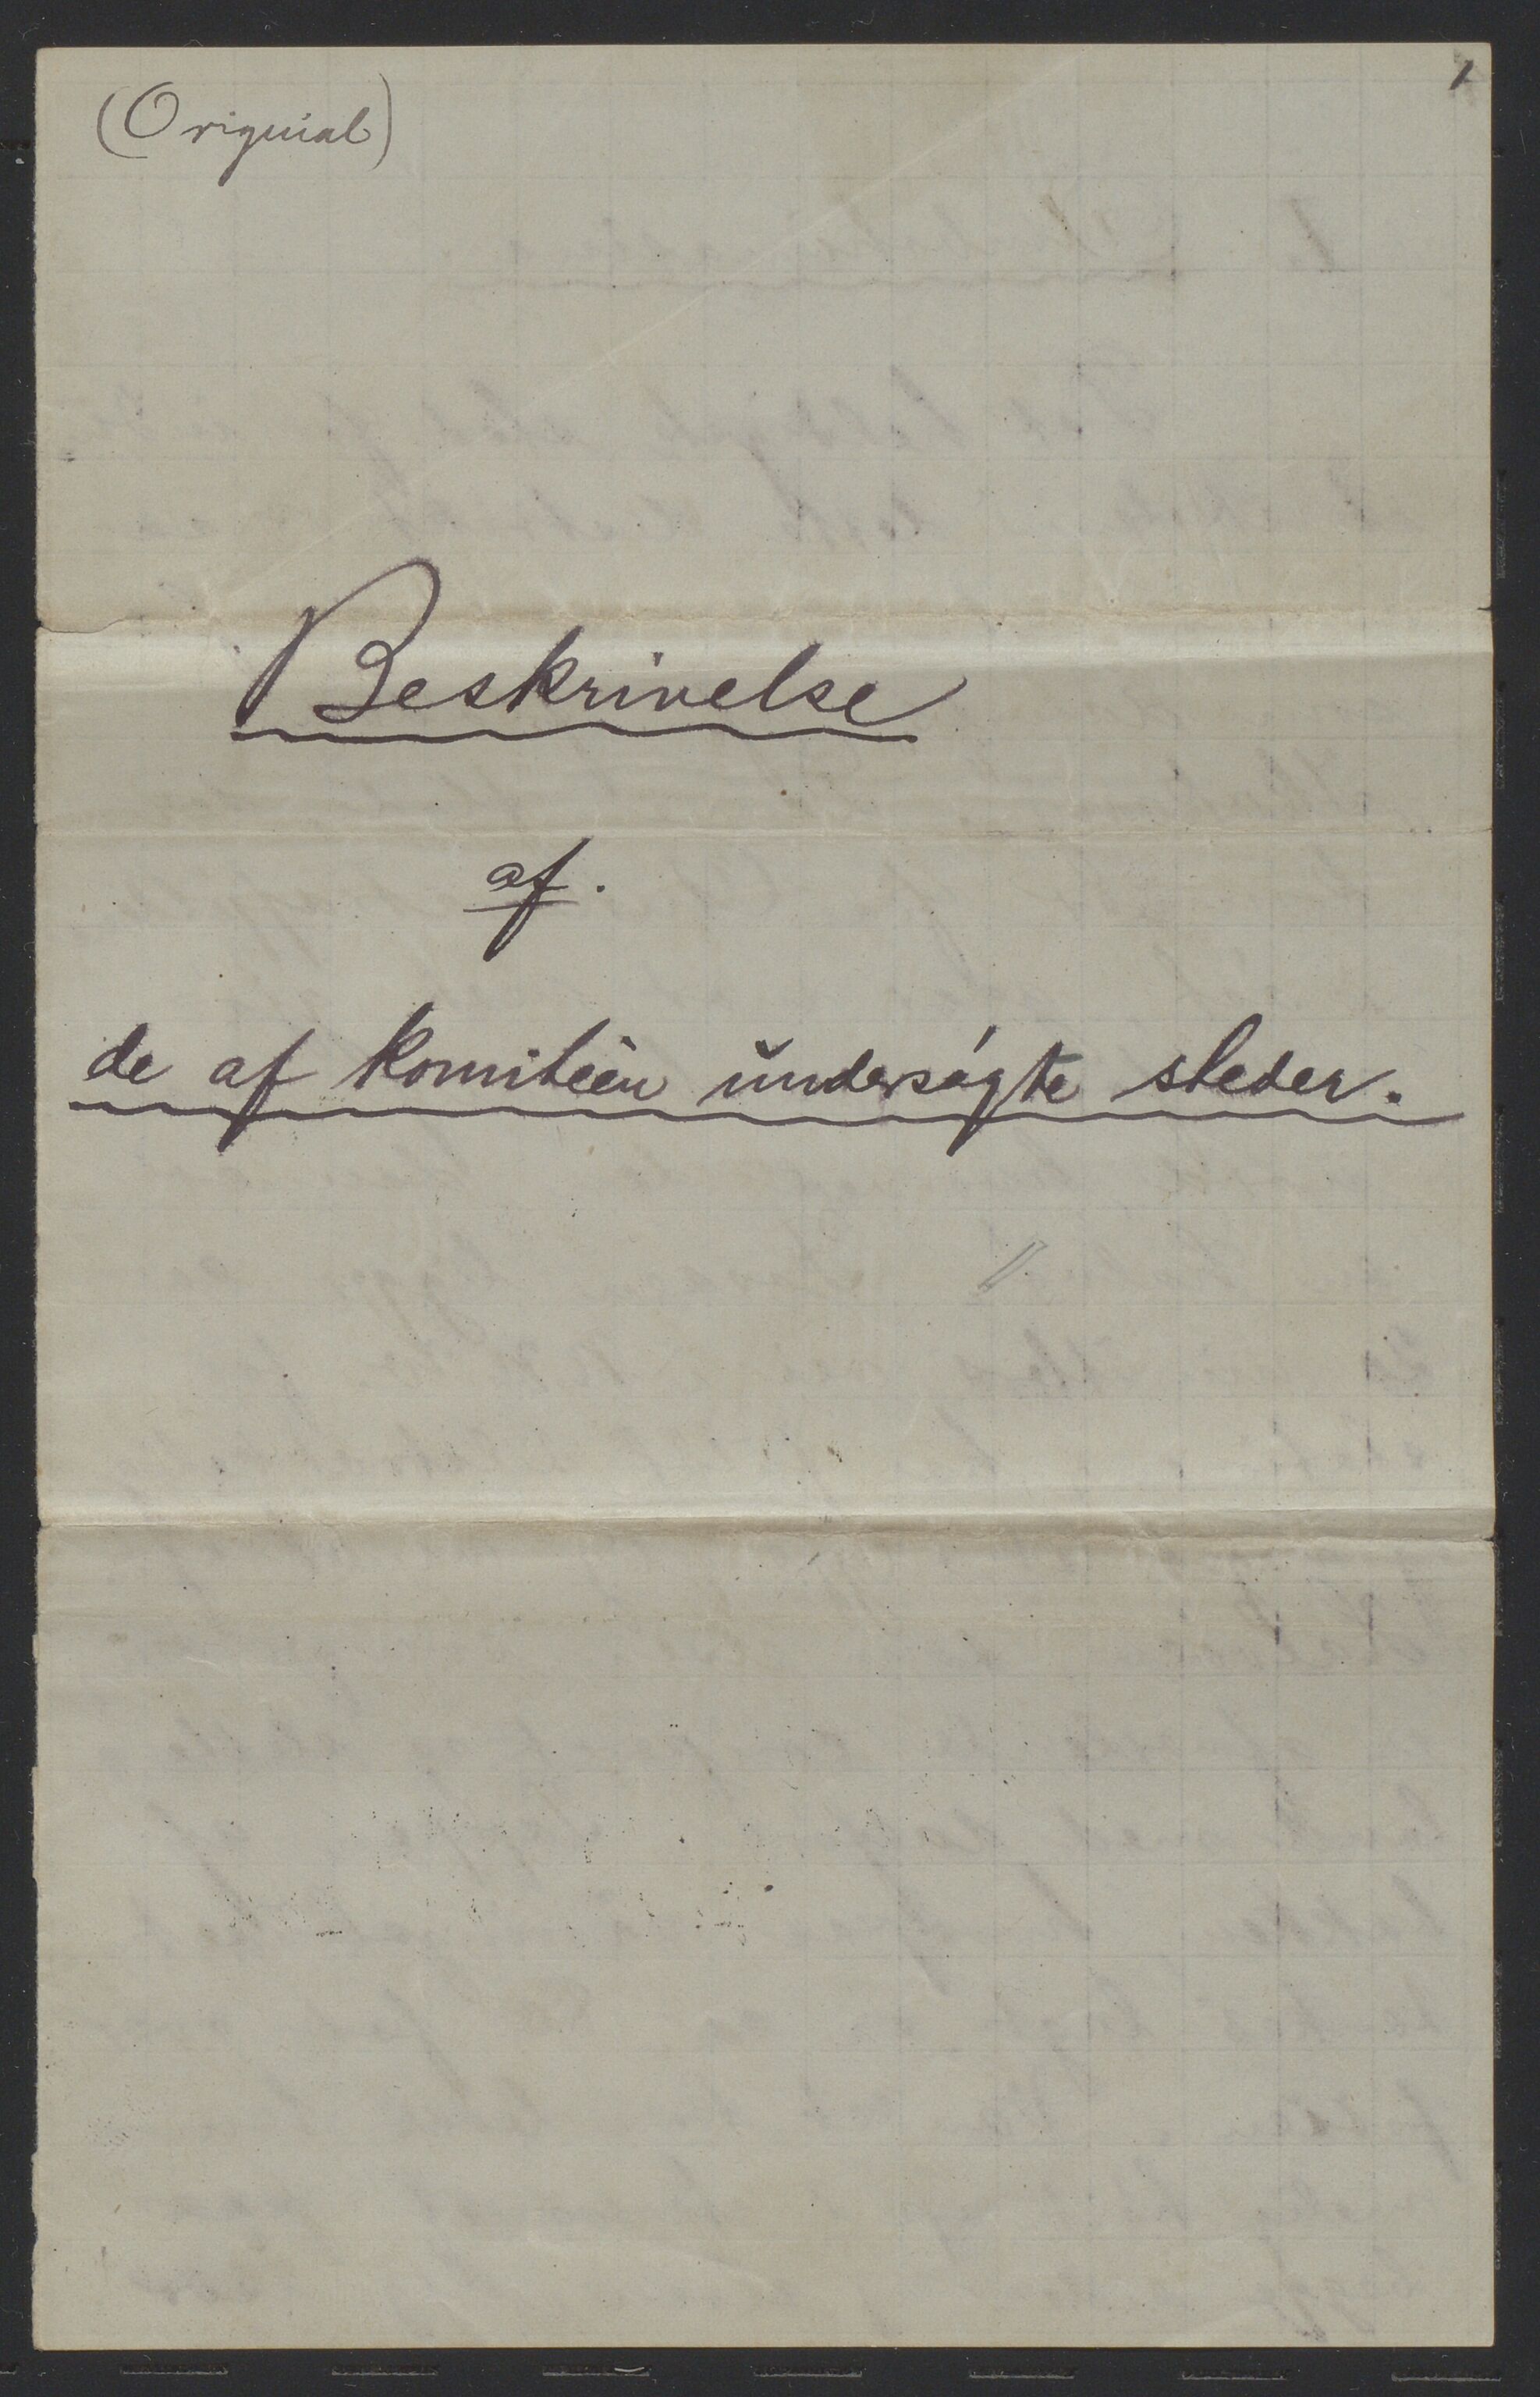 (Original)
1
Beskrivelse
af.
de af komitéen undersøgte steder.